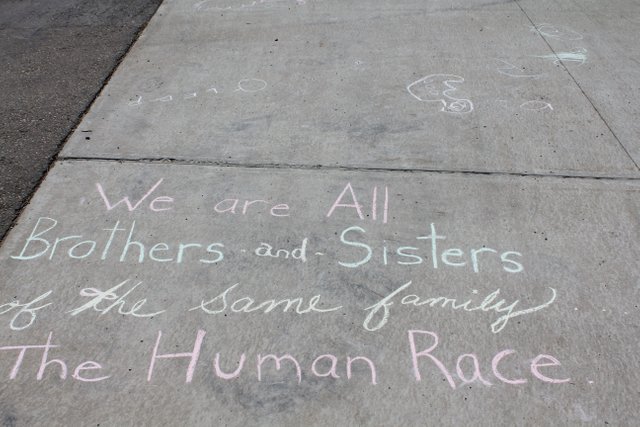 We are All
Brothers - and - Sisters
of the same family
The Human Race.